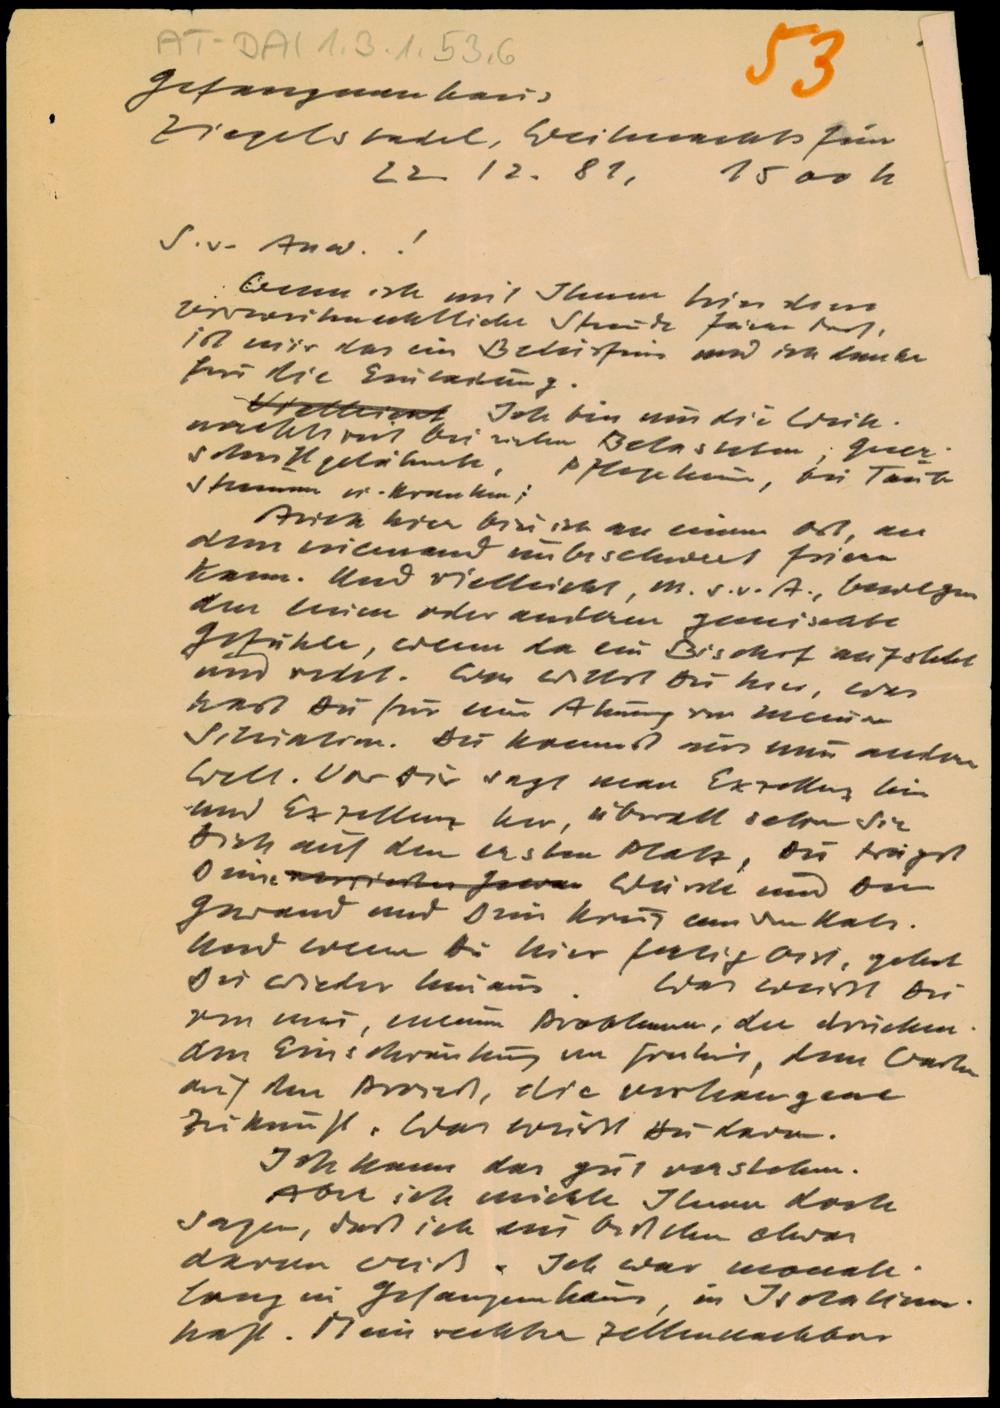 AT-DAI 1.3.1.53.6
53
Gefangenenhaus
Ziegelstadel, Weihnachtsfeier
22. 12. 81, 15 00 h
S.v. Anw. !
Wenn ich mit Ihnen hier diese
vorweihnachtliche Stunde feiern darf,
ist mir das ein Bedürfnis und ich danke
für die Einladung.
Vielleicht Ich bin um die Weih-
nachtszeit bei vielen Belasteten, Quer-
schnittgelähmte, Pflegeheim, bei Taub
stummen u. Kranken;
Auch hier bin ich an einem Ort, an
dem niemand unbeschwert feiern
kann. Und vielleicht, m. s.v. A., bewegen
den einen oder anderen gemischte
Gefühle, wenn da ein Bischof aufsteht
und redet. Was willst Du hier, was
hast Du für eine Ahnung von meiner
Situation. Du kommst aus einer anderen
Welt. Vor Dir sagt man Exzellenz hin
und Exzellenz her, überall setzen Sie
Dich auf den ersten Platz, Du trägst
Deine Würde und Dein
Gewand und Dein Kreuz um den Hals.
Und wenn Du hier fertig bist, gehst
Du wieder hinaus. Was weißt Du
von mir, meinen Problemen, der drücken-
den Einschränkung der Freiheit, dem Warten
auf den Prozeß, die verhangene
Zukunft. Was weißt Du davon.
Ich kann das gut verstehen.
Aber ich möchte Ihnen doch
sagen, daß ich ein bißchen etwas
davon weiß. Ich war monate-
lang im Gefangenenhaus, in Isolations-
haft. Mein rechter Zellennachbar